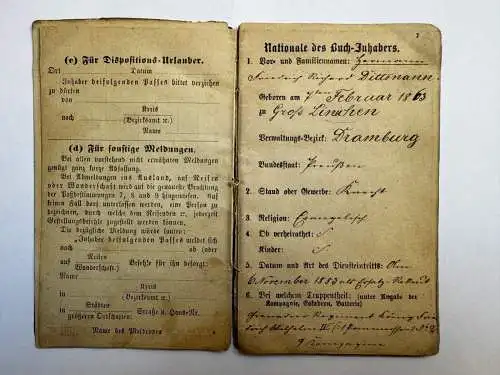 (c) Für Dispositions-Urlauber.
Ort Datum
Inhaber beifolgenden Passes bittet verziehen
zu dürfen
von
Kreis
nach (Bezirksamt ec.)
Name
(d) Für sonstige Meldungen.
Bei allen vorstehend nicht erwähnten Meldungen
genügt ganz kurze Abfassung.
Bei Abmeldungen ins Ausland, auf Reisen
oder Wanderschaft wird auf die genaueste Beachtung
der Paßbestimmungen 7, 8 und 9 hingewiesen. Auf
keinen Fall darf unterlassen werden, eine Person zu
bezeichnen, durch welche dem Reisenden ec. jederzeit
Gestellungsbefehle zugestellt werden können.
Die bezügliche Meldung würde lauten:
„Inhaber beifolgenden Passes meldet sich
nach ab (oder
Reisen
auf Befehle für ihn besorgt:
Wanderschaft.)
Name
Kreis
in (Bezirksamt ec.)
Städten
in Straße u. Haus-Nr.
größeren Ortschaften:
Name des Meldenden
2
Nationale des Buch-Inhabers.
1. Vor- und Familiennamen: Hermann
Friedrich Richard Dittmann
Geboren am 7ten Februar 1863
zu Groß Linichen
Verwaltungs-Bezirk: Dramburg
Bundesstaat: Preußen
2. Stand oder Gewerbe: Knecht
3. Religion: Evangelisch
4. Ob verheirathet:
Kinder:
5. Datum und Art des Diensteintritts: Am
6 November 1883 als Ersatz-Rekrut
6. Bei welchem Truppentheil: (unter Angabe der
Kompagnie, Eskadron, Batterie)
Grenadier Regiment König Frie
drich Wilhelm IV (1 Pommersches) № 2
9 Kompagnie